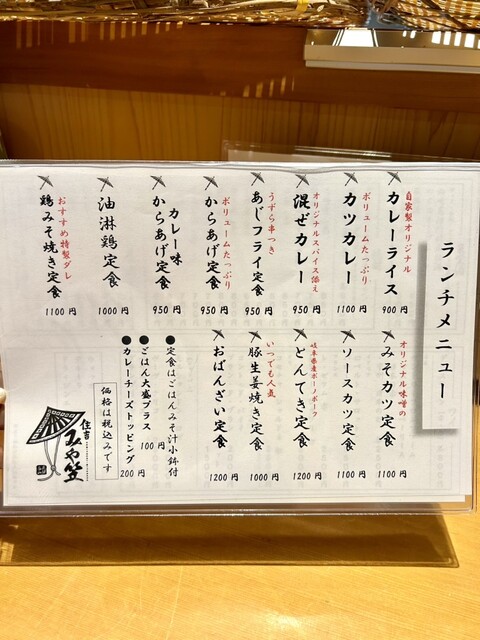 ランチメニュー
自家製オリジナル
カレーライス
900 円
ボリュームたっぷり
カツカレー
1100 円
オリジナルスパイス添え
混ぜカレー
950 円
うずら串つき
あじフライ定食
950 円
ボリュームたっぷり
からあげ定食
950 円
カレー味
からあげ定食
950 円
油淋鶏定食
1000 円
おすすめ特製ダレ
鶏みそ焼き定食
1100 円
オリジナル味噌の
みそカツ定食
1100 円
ソースカツ定食
1100 円
岐阜県産ボーノポーク
とんてき定食
1200 円
いつでも人気
豚生姜焼き定食
1000 円
おばんざい定食
1200 円
●定食はごはんみそ汁小鉢付
●ごはん大盛プラス
100 円
●カレーチーズトッピング
200 円
価格は税込みです
住吉
みや笠